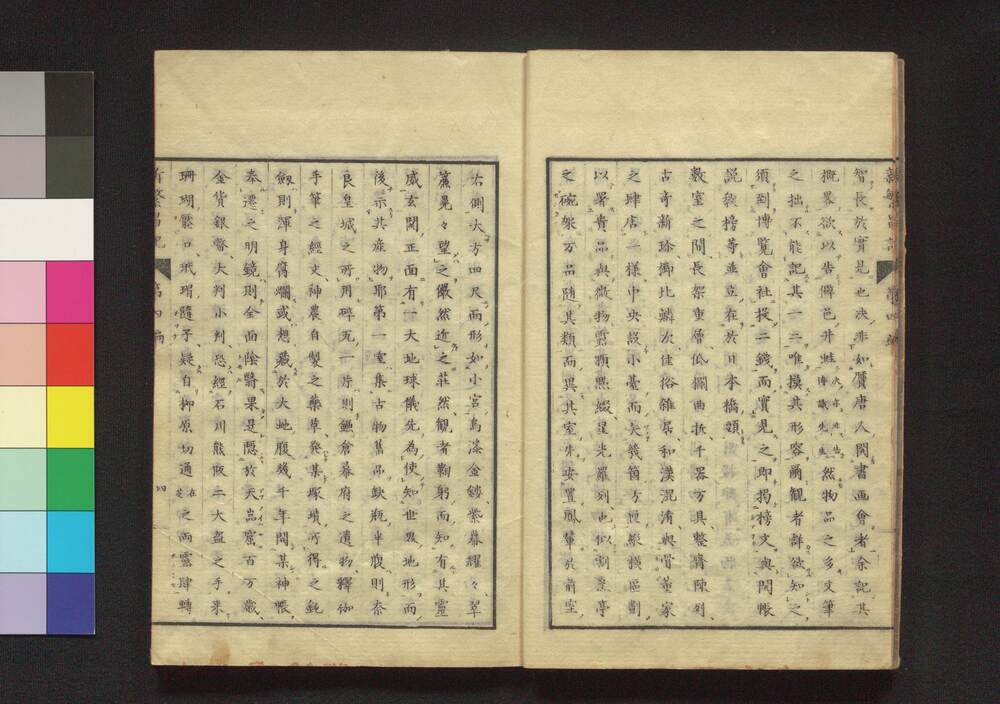 智長於實見也決非如贋唐人閲書画會者余記其
概畧欲以告僻邑井蛙 然物品之多文筆
之拙不能記其一二唯摸其形容爾観者詳欲知之
須到博覧會社投二錢而實見之即掲榜文與開帳
説教榜等並立在於日本橋頭
數室之間長架重層低欄曲折千器万具整齊陳列
古奇漸珍擠比鱗次佳俗雑居和漢混淆與骨董家
之肆店一様中央設小臺而矢幾箇方便縦横區劃
以署貴品與微物雲顆點綴星光羅列也似割烹亭
之碗架万品随其類而異其室先安置鳳輦於前室
右側大方四尺而形如小宮烏漆金鏤紫幕耀々翠
簾晃々望之儼然近之荘然観者鞠躬而知有其靈
威玄関正面有一大地球儀先為使知世界地形而
後示其産物耶第一室集古物舊品缺瓶半腹則奈
良皇城之所用碎瓦一片則鎌倉幕府之遺物釋伽
手筆之經文神農自製之藥草發某塚墳所得之鈍
剱則渾身腐爛或想蔵於大地腹幾千年間某神帳
奉遷之明鏡則全面陰翳果是隠於天岩窟百万歳
金貨銀幣大判小判恐經石川熊阪二大盗之手来
珊瑚㷔口玳瑁随子疑自柳原切通 之両露肆轉
新繁昌記 第四編
四